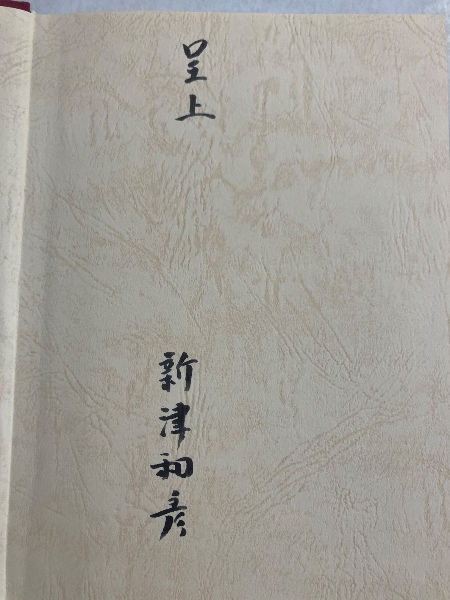 呈上
新津和彦